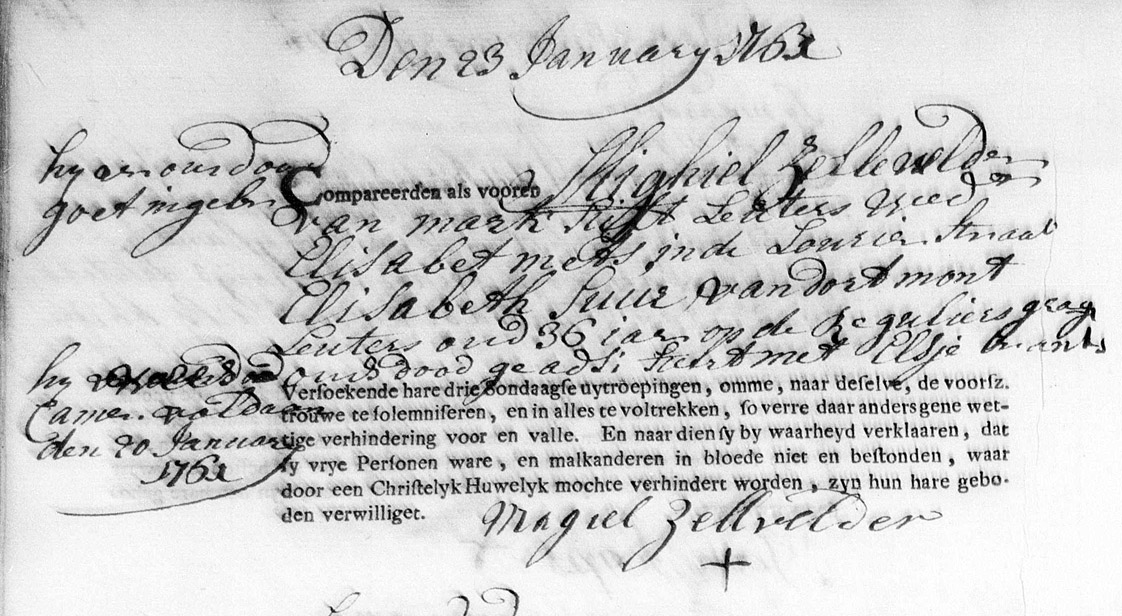 Den 23 January 1761
hy en ouders dood
goet ingebr
Compareerden als vooren Mighiel Zellevelder
van mark Luters wed
Elisabet mets in de Laurier Straat
Elisabeth Suur van dortmont
Leuters oud 36 iar op de Reguliers grag
ouders dood geadst met Elsje
hy
Camer voldaen
den 20 January
1761
Versoekende hare drie Sondaagse uytroepingen, omme, naar deselve, de voorsz.
trouwe te solemniseren, en in alles te voltrekken, so verre daar anders gene wet-
tige verhindering voor en valle. En naar dien sy by waarheyd verklaaren, dat
sy vrye Personen ware, en malkanderen in bloede niet en bestonden, waar
door een Christelyk Huwelyk mochte verhindert worden, zyn hun hare gebo-
den verwilliget.
Magiel Zellvelder